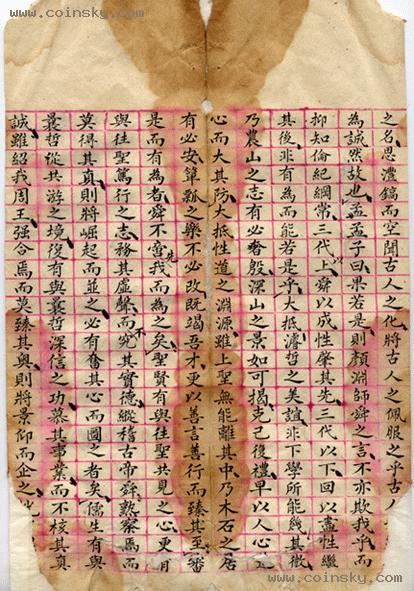 www.coinsky.com
www.coinsky.com
之名思灃鎬而空聞古人之化將古人之佩服之乎古人
為誠然故也孟孟子曰果若是則顏淵師舜之言不亦欺我乎而
抑知倫紀綱常三代上舜以成性肇其先三代以下回以盡性繼
其後非有為而能若是乎大抵濬哲之美誼非下學所能幾其徵
乃農山之志有必奢殷深山之景如可揭克己後禮早以人心
心而大其防大抵性道之淵源雖上聖無能離其中乃木石之居
有必安簞瓢之樂不必改既竭吾才更以善言善行而臻其至番
是而有為者舜不啻我先為之矣聖賢有與往聖共見之心更有
與往聖篤行之志務其虛聲而不究其實德縱稽古帝舜默察焉而
莫得其真則將崛起而並之必有奮其心而圖之者矣儒生有與
曩哲從共游之境後有與曩哲深信之功慕其事業而不核其真
誠雖紹我周王强合焉而莫臻其奧則將景仰而企之
www.coinsky.com